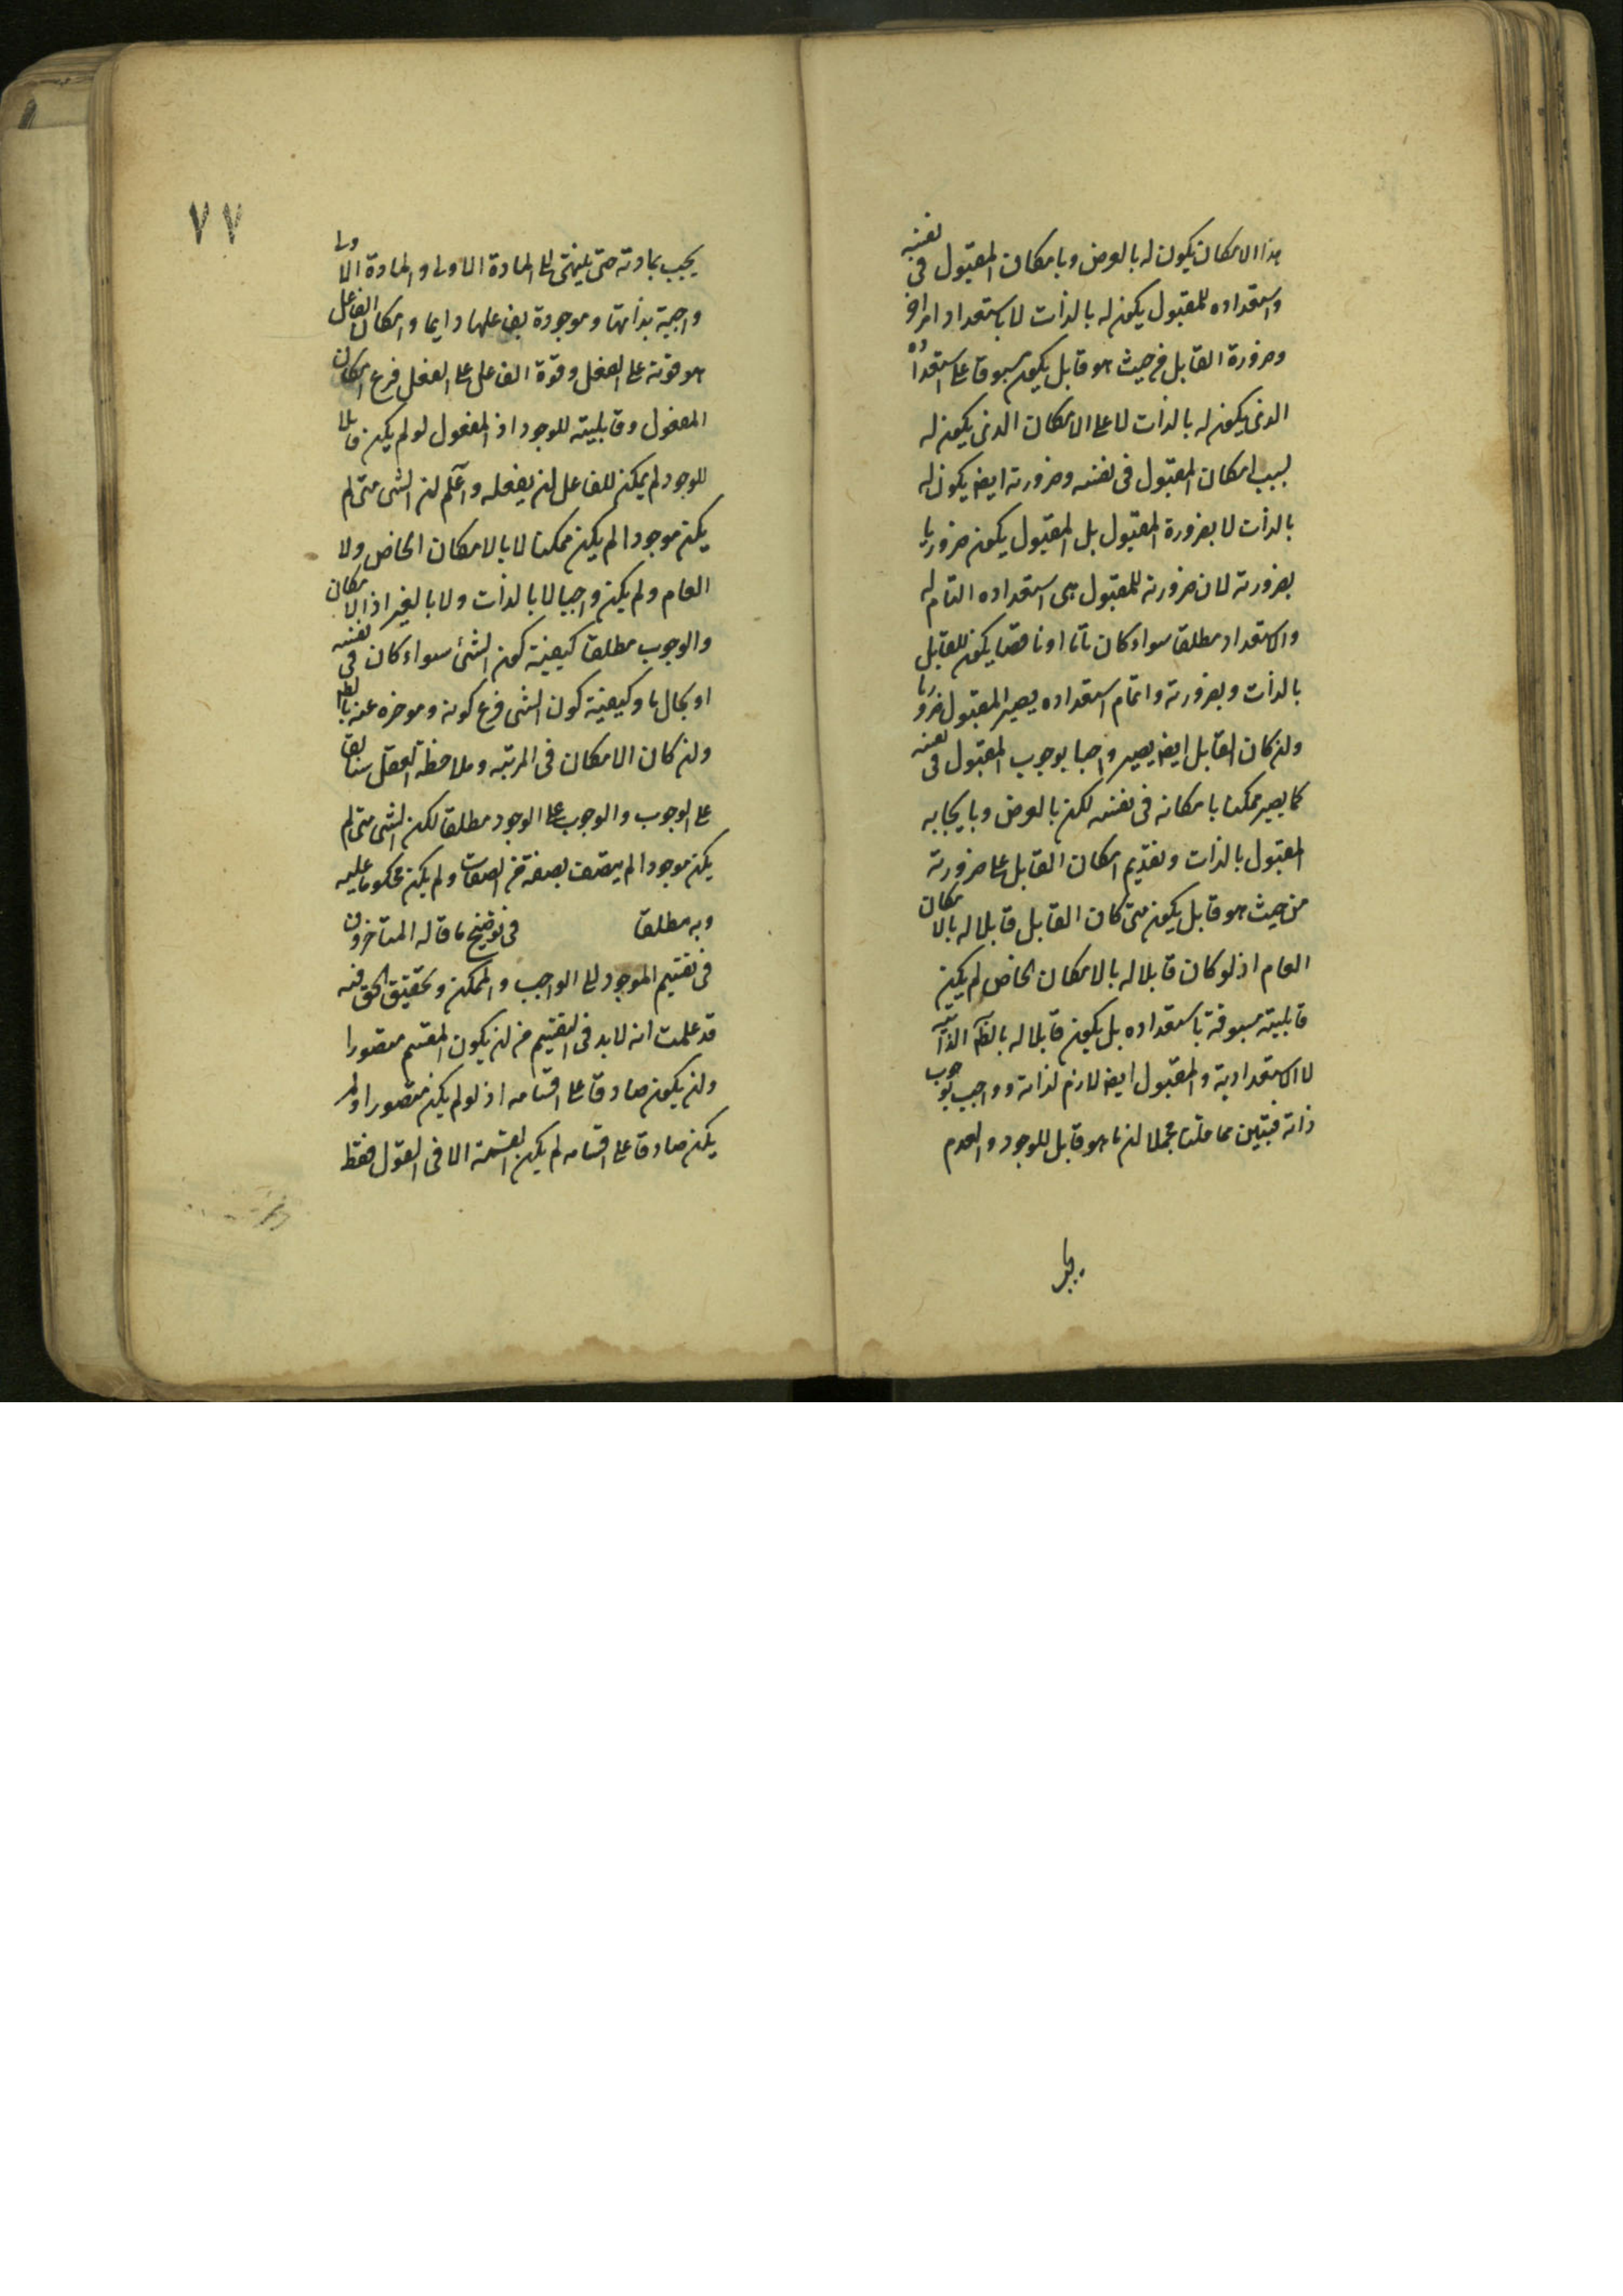 هذا الامكان يكون له بالعرض وبامكان المقبول فى نفسه
واستعداده للمقبول يكون له بالذات لا باستعداد امر اخر
وضرورة القابل من حيث هو قابل يكون مسبوقا على استعداده
الذى يكون له بالذات لا على الامكان الذى يكون له
بسبب امكان المقبول فى نفسه وضرورته ايضا يكون له
بالذات لا بضرورة المقبول بل المقبول يكون ضروريا
بضرورته لان ضرورته للمقبول هى استعداده التام له
والاستعداد مطلقا سواء كان تاما او ناقصا يكون للقابل
بالذات وبضرورته واتمام استعداده يصير المقبول ضروريا
ولن كان القابل ايضا يصير واجبا بوجوب المقبول فى نفسه
كما يصير ممكنا بامكانه فى نفسه لكن بالعرض وبايجابه
المقبول بالذات وتقديم امكان القابل على ضرورته
من حيث هو قابل يكون متى كان القابل قابلا له بالامكان
العام اذ لو كان قابلا له بالامكان الخاص لم يكن
قابليته مسبوقة باستعداده بل يكون قابلا له الذاتية
لا الاستعدادية والمقبول ايضا لازم لذاته وواجب بوجوب
ذاته فتبين مما قلنا مجملا لن ما هو قابل للوجود والعدم
٧٧
يجب بمادته حتى ينتهى الى المادة الاولى والمادة الاولى
واجبة بذاتها وموجودة بفاعلها دايما وامكان الفاعل
هو قوته على الفعل وقوة الفاعل على الفعل فرع امكان
المفعول وقابليته للوجود اذ المفعول لو لم يكن قابلا
للوجود لم يمكن للفاعل لن يفعله واعلم لن الشى متى لم
يكن موجودا لم يكن ممكنا لا بالامكان الخاص ولا
العام ولم يكن واجبا لا بالذات ولا بالغير اذ الامكان
والوجوب مطلقا كيفية كون الشئ سواء كان فى نفسه
او بحال ما وكيفية كون الشى فرع كونه وموخره عنه
ولن كان الامكان فى المرتبة وملاحظة العقل سابقا
على الوجوب والوجوب على الوجود مطلقا لكن الشى متى لم
يكن موجودا لم يتصف بصفة من الصفات ولم يكن محكوما عليه
وبه مطلقا فى توضيح ما قاله المتاخرون
فى تقسيم الموجود الى الواجب والممكن وتحقيق الحق فيه
قد علمت انه لا بد فى التقسيم من لن يكون المقسم متصورا
ولن يكون صادقا على اقسامه اذ لو لم يكن متصورا او لم
يكن صادقا على اقسامه لم يكن القسمة الا فى القول فقط